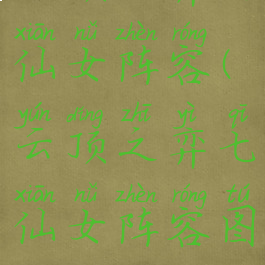 xiān nǚ zhèn róng
仙女阵容(
yún dǐng zhī yì qī
云顶之弈七
xiān nǚ zhèn róng tú
仙女阵容图